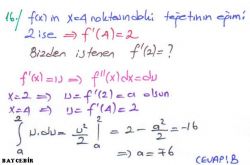 16-) f(x) in x=4 noktasındaki teğetinin eğimi
2 ise ⇒ f'(4)=2
Bizden istenen f'(2)=?
f'(x)=u ⇒ f''(x)dx=du
x=2 ⇒ u=f'(2)=a olsun
x=4 ⇒ u=f'(4)=2
∫ₐ² u.du = u²/2 |ₐ² = 2 - a²/2 = -16
⇒ a=76
BAYCEBİR CEVAP: B